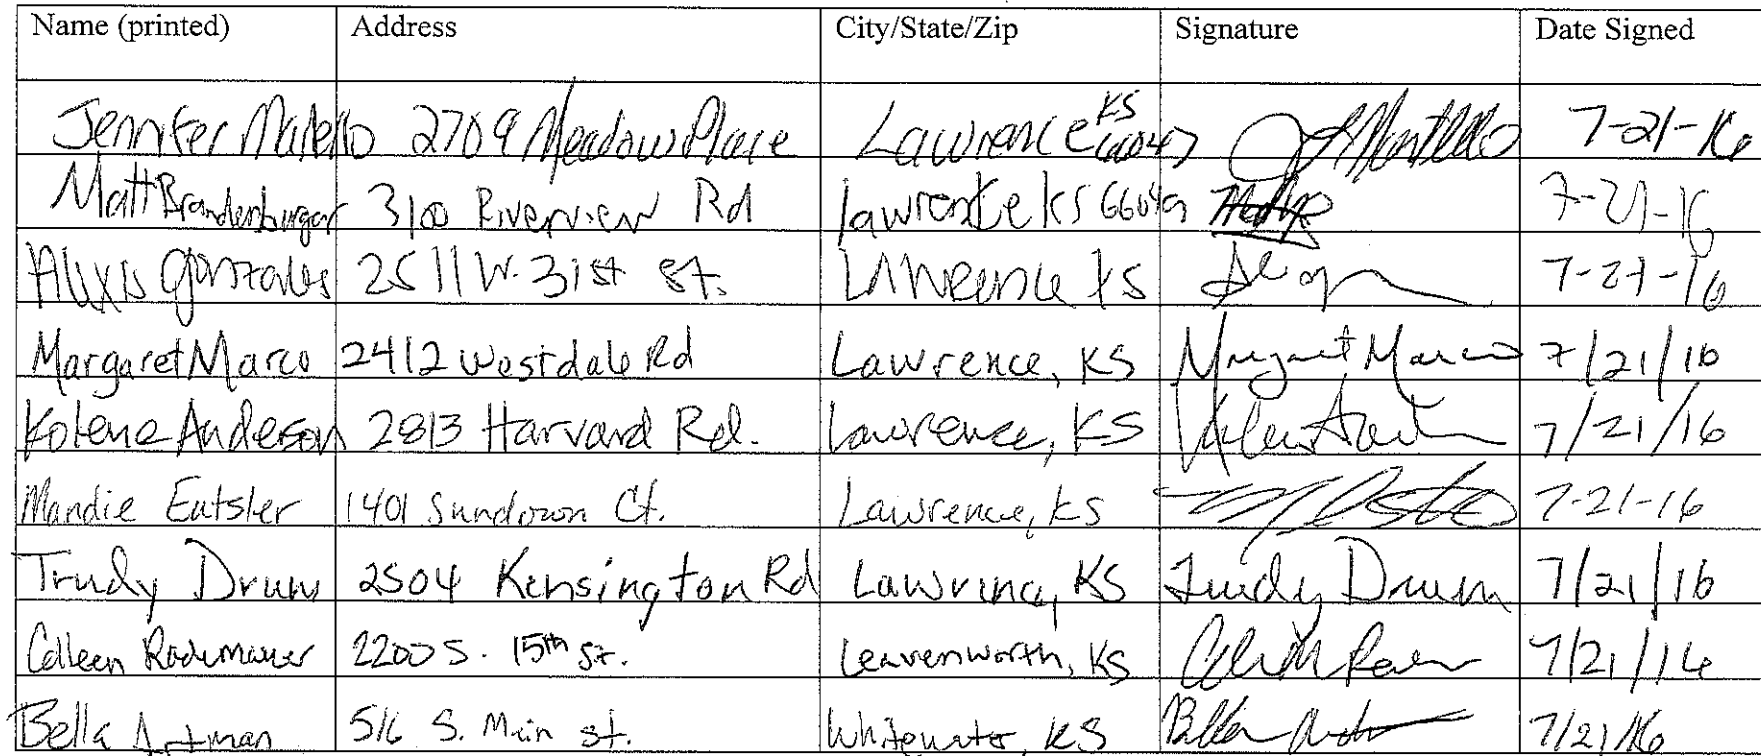 Name (printed) Address City/State/Zip Signature Date Signed
Jennifer 2709 Meadow Place Lawrence KS 66047 7-21-16
Matt Brandenburger 3100 Riverview Rd Lawrence KS 66049 7-21-16
Alexis Gonzales 2511 W. 31st St. Lawrence KS 7-21-16
Margaret Marco 2412 Westdale Rd Lawrence, KS Margaret Marco 7/21/16
Kolene Anderson 2813 Harvard Rd. Lawrence, KS 7/21/16
Mandie Eutsler 1401 Sundown Ct. Lawrence, KS 7-21-16
Trudy Drum 2504 Kensington Rd Lawrence, KS Trudy Drum 7/21/16
Colleen 2200 S. 15th St. Leavenworth, KS 7/21/16
Bella Artman 516 S. Main St. Whitewater, KS 7/21/16